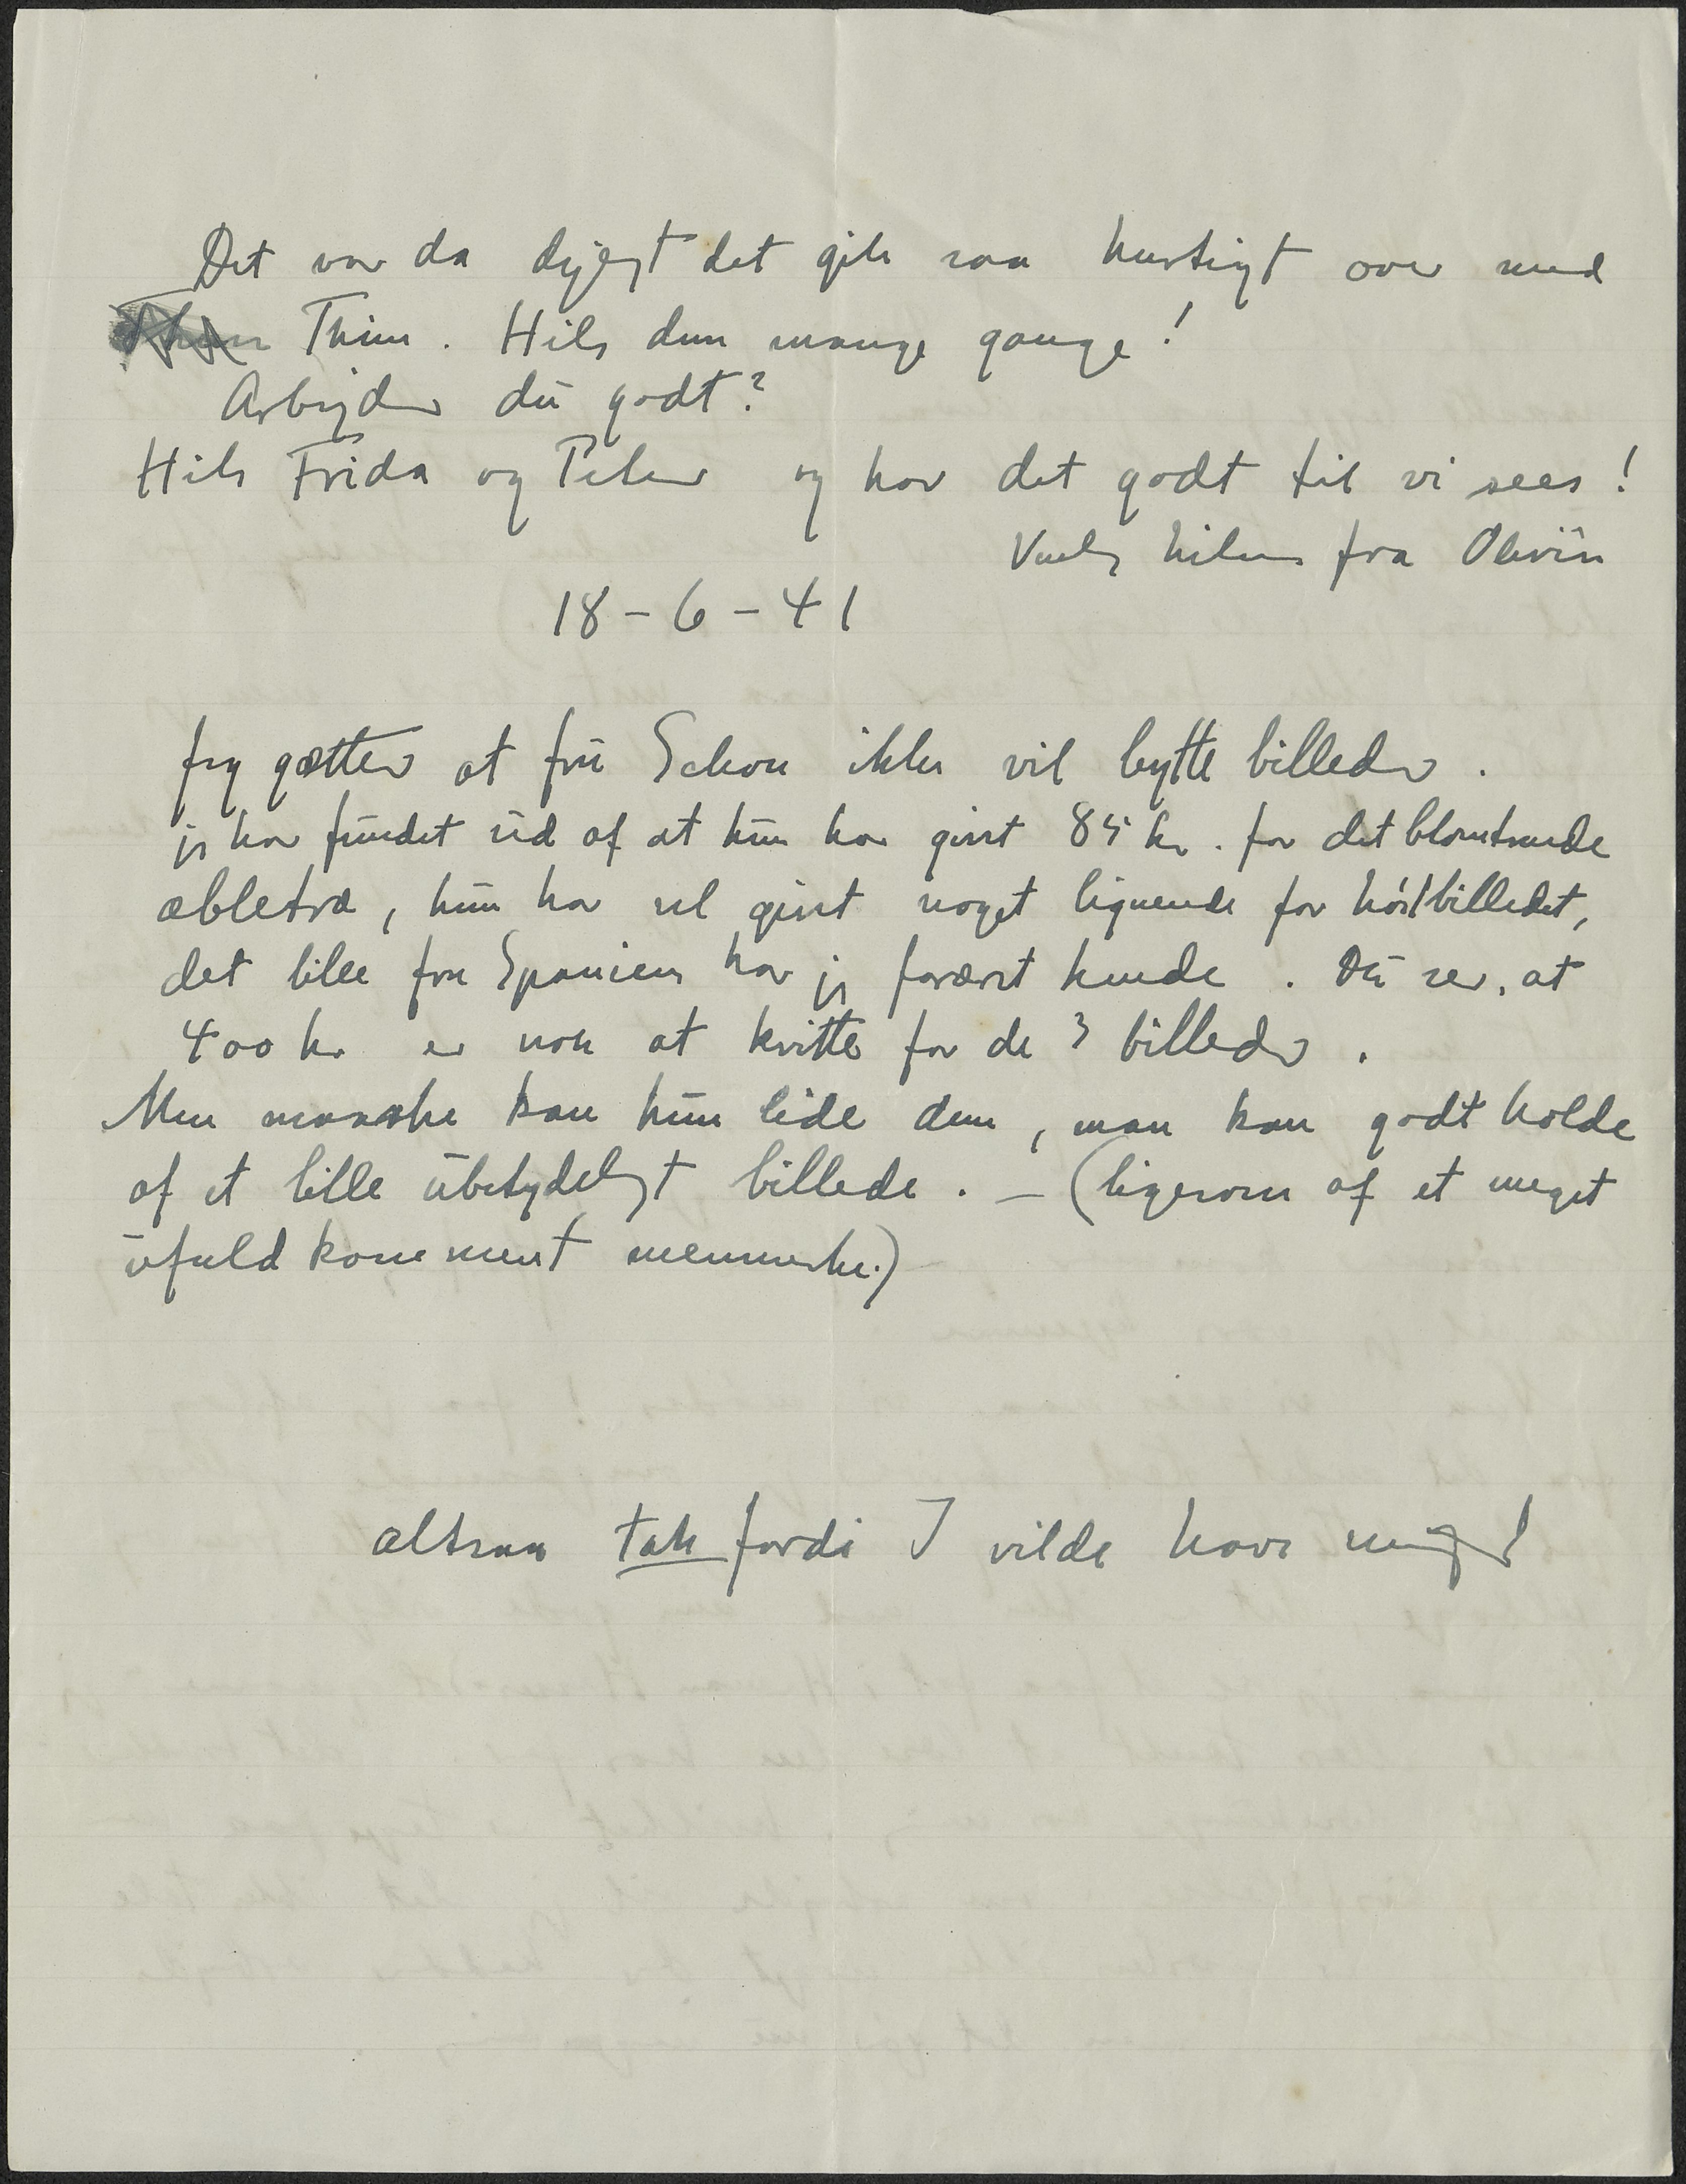 Det var da dejligt det gik saa hurtigt over med
Thim. Hils dem mange gange!
Arbejder du godt?
Hils Frida og Peter og hav det godt til vi sees!
Venlig hilsen fra Olivia
18-6-41
Jeg gætter at fru Schou ikke vil bytte billeder.
jeg har fundet ud af at hun har givet 85 kr. for det blomstrende
æbletræ, hun har vel givet noget lignende for høstbilledet,
det lille fra Spanien har jeg foræret hende. Du ser, at
400 kr er nok at kvitte for de 3 billeder.
Men maaske kan hun lide dem, man kan godt holde
af et lille ubetydeligt billede. - (ligesom af et meget
ufuldkomment menneske.)
altsaa tak fordi I vilde have mig!